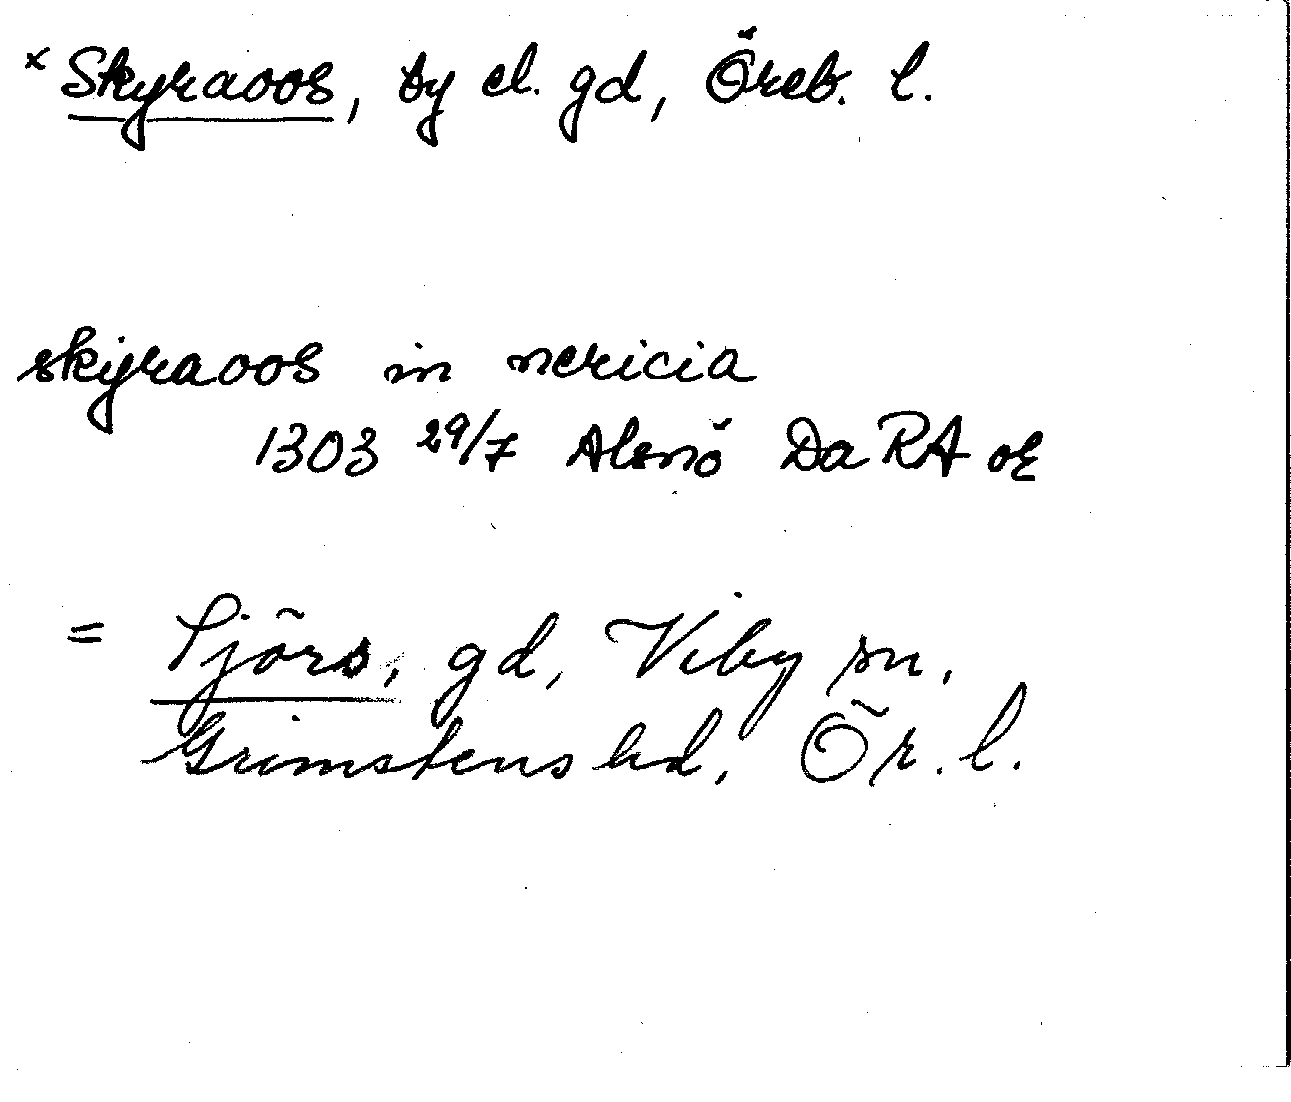 × Skyraoos, by el. gd, Öreb. l.
skẏraoos in nericia
1303 29/7 Alsnö Da RA or
= Sjörs, gd, Viby sn,
Grimstens hd, Ör. l.